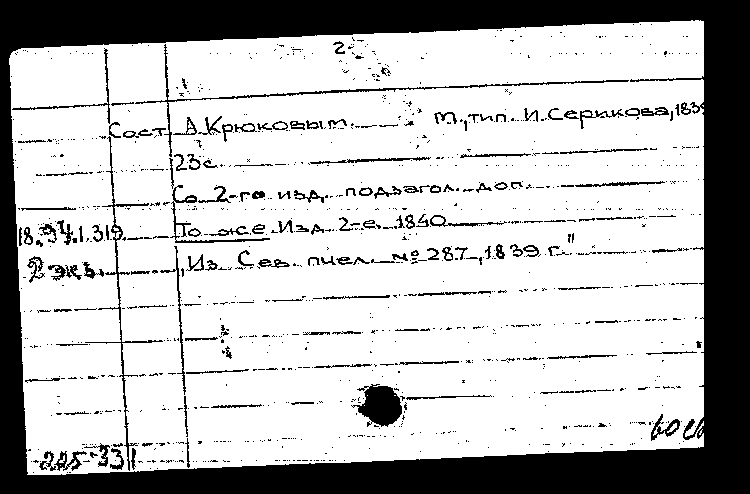 2
Сост. А. Крюковым. М., тип. И. Серикова, 1839
23 с.
Со 2-го изд. подзагол. доп.
18.94.1.319 То же Изд. 2-е. 1840
2 экз. „Из Сев. пчел. № 287, 1839 г."
225-33